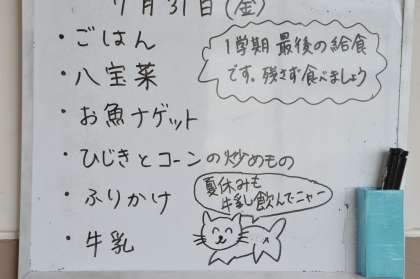 7月31日(金)
・ごはん
・八宝菜
・お魚ナゲット
・ひじきとコーンの炒めもの
・ふりかけ
・牛乳
1学期 最後の給食
です。残さず食べましょう
夏休みも
牛乳飲んでニャー